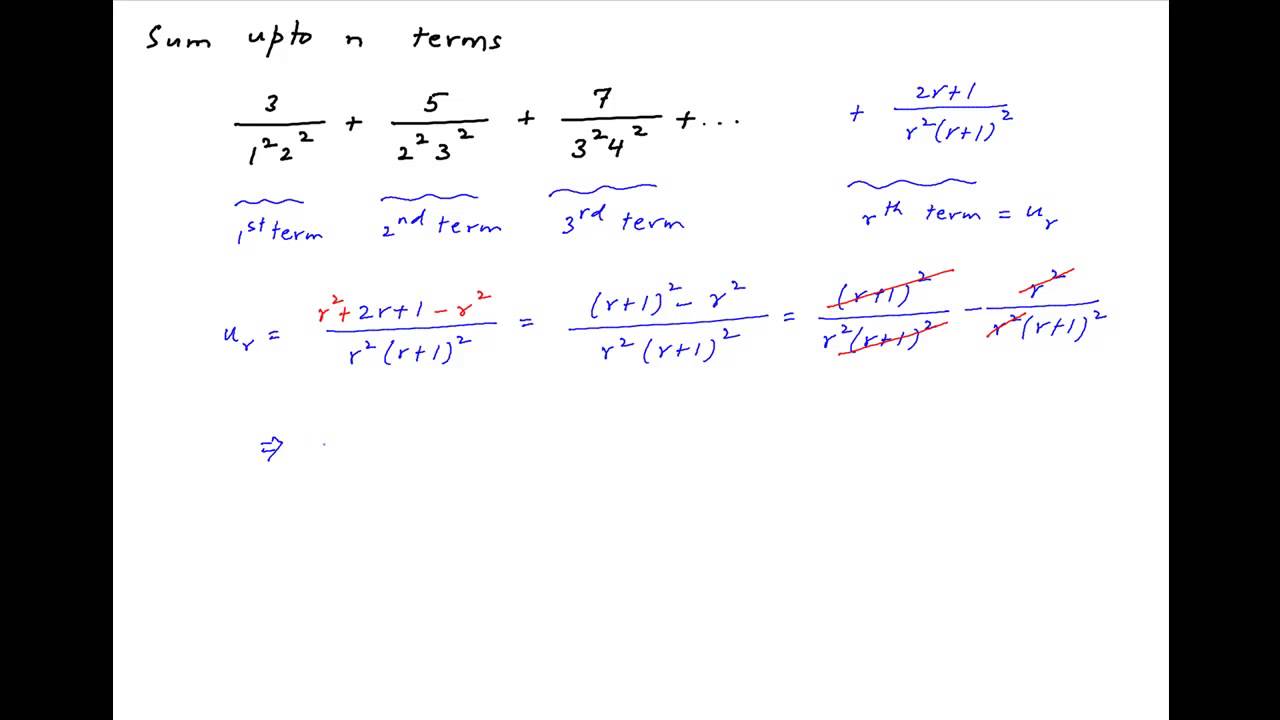 Sum upto n terms
3/(1²2²) + 5/(2²3²) + 7/(3²4²) + ... + (2r+1)/(r²(r+1)²)
1st term 2nd term 3rd term rth term = u_r
u_r = (r²+2r+1-r²)/(r²(r+1)²) = ((r+1)²-r²)/(r²(r+1)²) = (r+1)²/(r²(r+1)²) - r²/(r²(r+1)²)
⇒